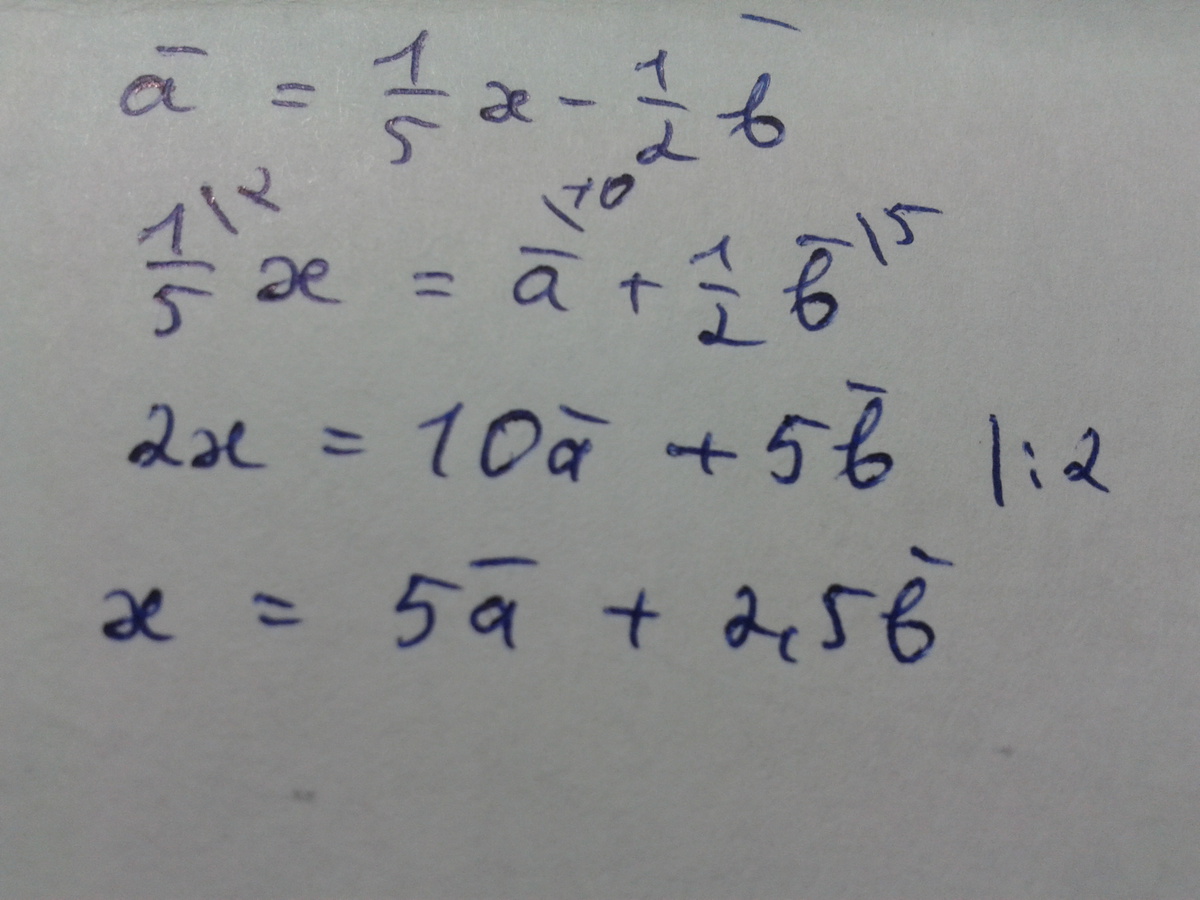 ā = 1/5 x - 1/2 b̄
1/5 \2 x = ā \10 + 1/2 b̄ \5
2x = 10ā + 5b̄ |:2
x = 5ā + 2,5b̄